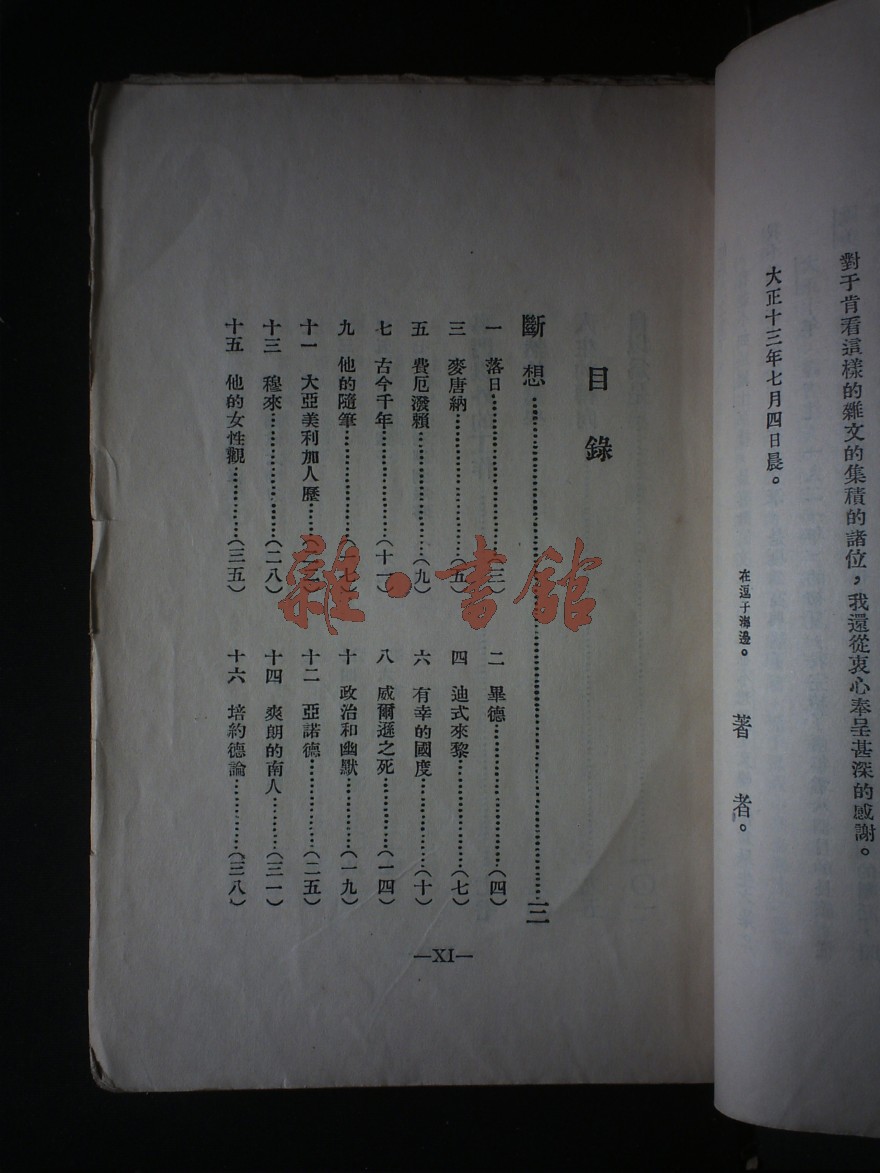 對于肯看這樣的雜文的集積的諸位，我還從衷心奉呈甚深的感謝。
大正十三年七月四日晨。
在逗子海邊。
著者。
目錄
斷想…………
一 落日…………(三)
二 畢德…………(四)
三 麥唐納…………(五)
四 迪式來黎…………(七)
五 費厄潑賴…………(九)
六 有幸的國度…………(十)
七 古今千年…………(十一)
八 威爾遜之死…………(一四)
九 他的隨筆…………(一七)
十 政治和幽默…………(一九)
十一 大亞美利加人歷……
十二 亞諾德…………(二五)
十三 穆來…………(二八)
十四 爽朗的南人…………(三一)
十五 他的女性觀…………(三五)
十六 培約德論…………(三八)
—XI—
雜·書館